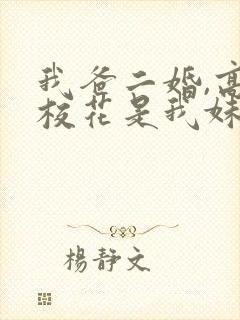 我爸二婚,高
校花是我妹
楊靜文